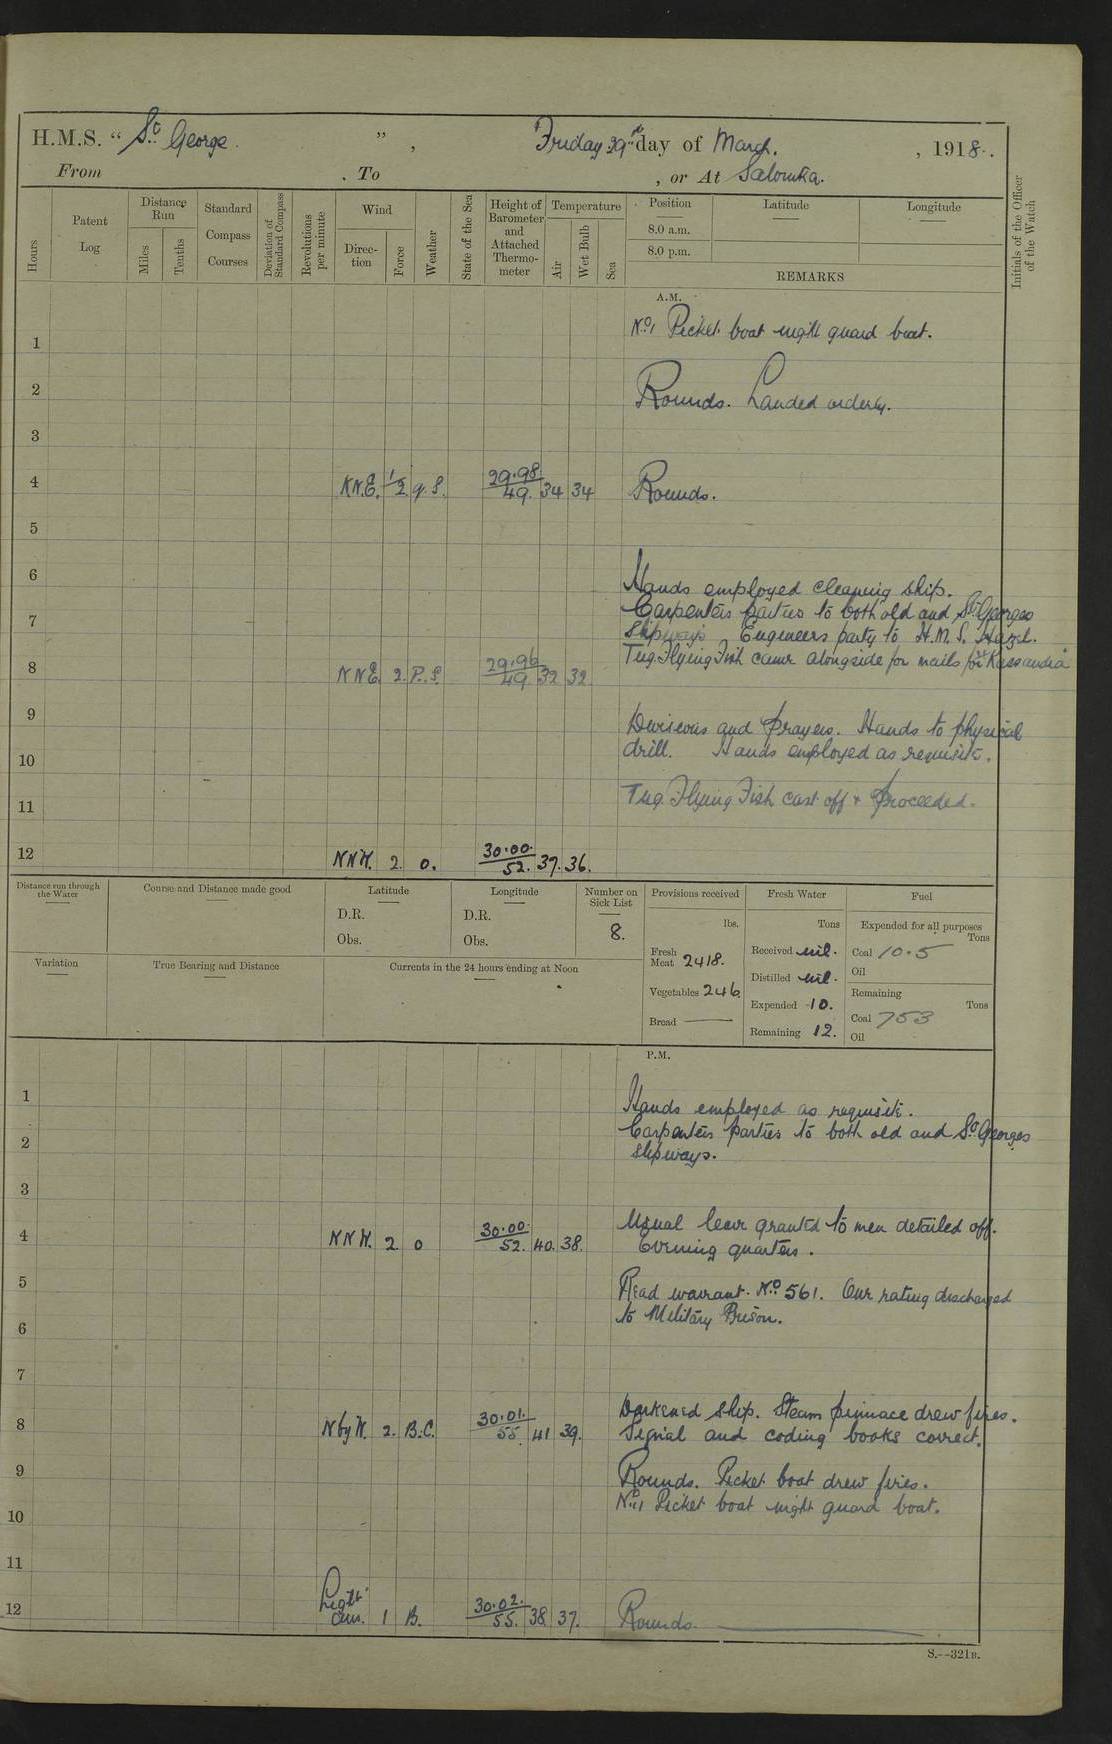 H.M.S. " St. George " , Friday 29th day of March. , 1918.
From . To , or At Salonika.
Hours
Patent Log
Distance Run
Miles
Tenths
Standard Compass Courses
Deviation of Standard Compass
Revolutions per minute
Wind
Direction
Force
Weather
State of the Sea
Height of Barometer and Attached Thermometer
Temperature
Air
Wet Bulb
Sea
Position
8.0 a.m.
8.0 p.m.
Latitude
Longitude
REMARKS
Initials of the Officer of the Watch
A.M.
No. 1 Picket boat night guard boat.
1
2 Rounds. Landed orderly.
3
4 N.N.E. 1/2 q.S. 29.98 49. 34 34 Rounds.
5
6 Hands employed cleaning ship.
Carpenters parties to both old and St. Georges
7 Slipways Engineers party to H.M.S. Hazel.
Tug Flying Fish came alongside for mails for Kassandra
8 N N E. 2. P.S. 29.96 49 32 32
9 Divisions and prayers. Hands to physical
drill. Hands employed as requisite.
10
11 Tug Flying Fish cast off & proceeded.
12 N N W. 2. o. 30.00. 52. 37. 36.
Distance run through the Water
Course and Distance made good
Latitude
D.R.
Obs.
Longitude
D.R.
Obs.
Number on Sick List
8.
Provisions received
lbs.
Fresh Meat 2418.
Vegetables 246
Bread —
Fresh Water
Tons
Received nil.
Distilled nil.
Expended 10.
Remaining 12.
Fuel
Expended for all purposes
Tons
Coal 10.5
Oil
Remaining
Tons
Coal 753
Oil
Variation
True Bearing and Distance
Currents in the 24 hours ending at Noon
P.M.
1 Hands employed as requisite.
Carpenters parties to both old and St. Georges
2 slipways.
3
4 N N W. 2 o 30.00. 52. 40. 38. Usual leave granted to men detailed off.
Evening quarters.
5 Read warrant No. 561. One rating discharged
to Military Prison.
6
7
8 N by W. 2. B.C. 30.01. 55. 41 39. Darkened ship. Steam pinnace drew fires.
Signal and coding books correct.
9 Rounds. Picket boat drew fires.
No. 1 Picket boat night guard boat.
10
11
12 Light airs. 1 B. 30.02. 55. 38 37. Rounds.
S.--321B.